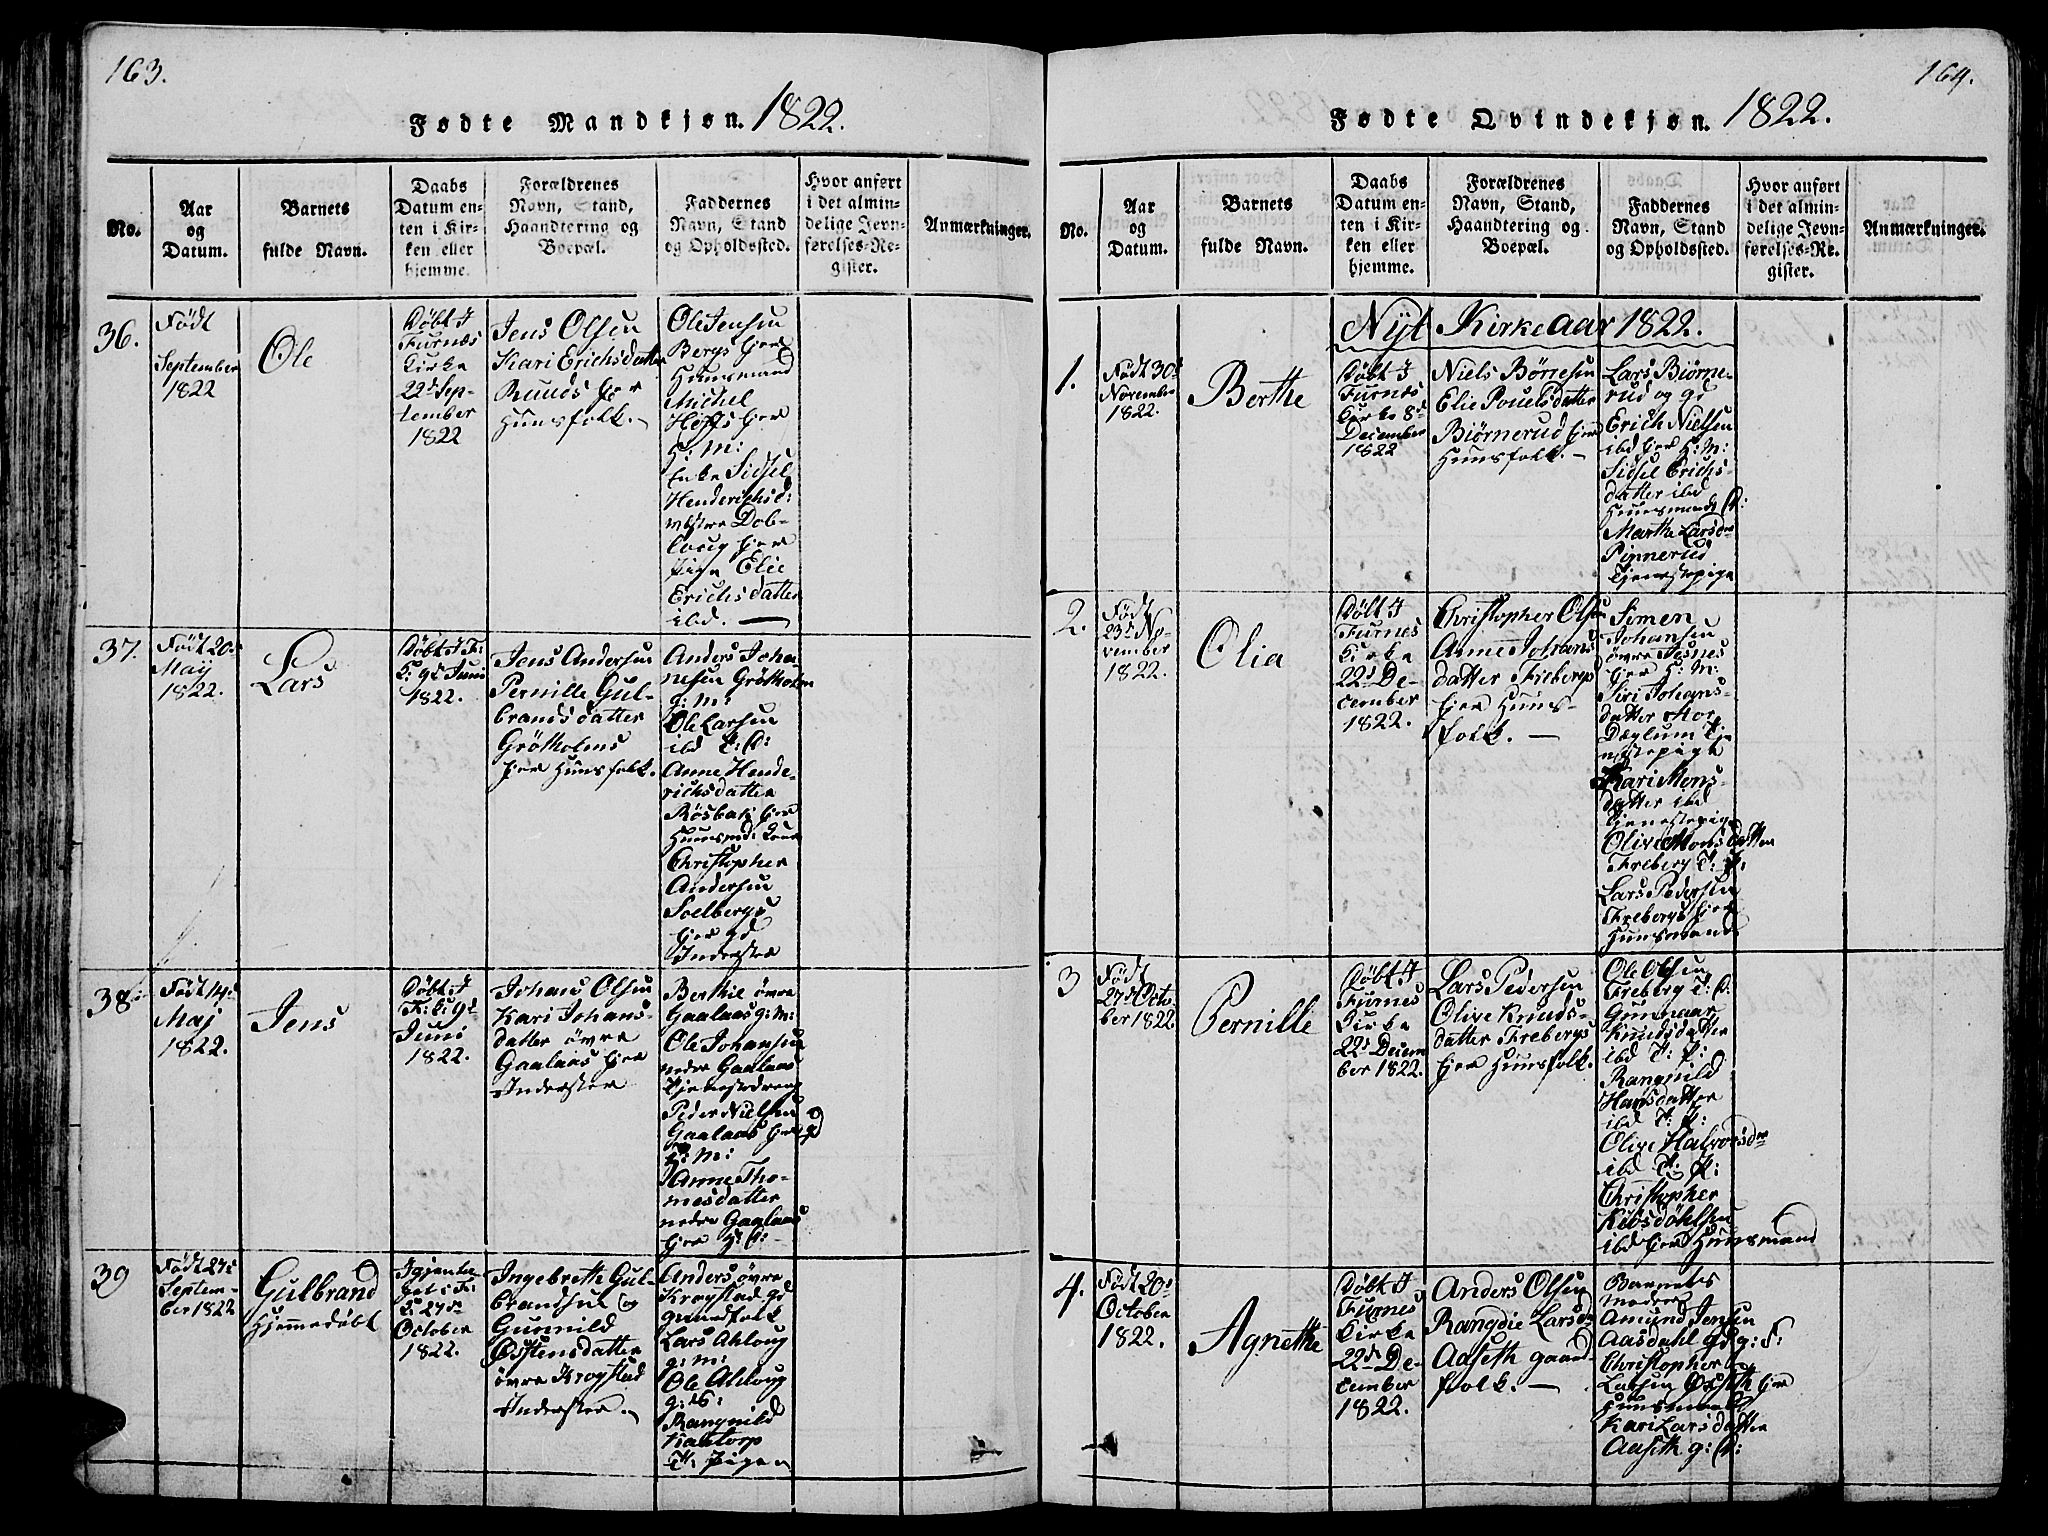 163.
Fødte Mandkjøn. 1822.
No.
Aar
og
Datum.
Barnets
fulde Navn.
Daabs
Datum en-
ten i Kir-
ken eller
hjemme.
Forældrenes
Navn, Stand,
Haandtering og
Boepæl.
Faddernes
Navn, Stand
og Opholdssted.
Hvor anført
i det almin-
delige Jevn-
førelses-Re-
gister.
Anmærkninger.
36.
Født
September
1822
Ole
Døbt I
Furnæs
Kirke
22d Sep-
tember
1822
Jens Olsen
Kari Erichsdatter
Ruuds
Huusfolk.
Ole Jensen
Bergs Eier
Huusmand
Michel
Hoffs Eier
H: M:
Enke Sidsel
Henderichsd:
Dob-
loug Eier
Pige Elie
Erichsdatter
ibd.
37.
Født 20de
May
1822.
Lars
Døbt I F:
K: 9d Juni
1822.
Jens Andersen
Pernille Gul-
brandsdatter
Grötholms
Eier Huusfolk.
Anders Joha-
nesen Grötholm
g: M:
Ole Larsen
ibd
Anne Hende-
richsdatter
Rösbak Eier
Huusmd: Kone
Christopher
Andersen
Soelbergs
Eier gd
Inderster
38
Født 14d
Maj
1822.
Jens
Døbt I
F: K: 9d
Juni
1822.
Johans Olsen
Kari Johans-
datter øvre
Gaalaas Eier
Inderster
Berthil øvre
Gaalaas g: M:
Ole Johansen
nedre Gaalaas
Tjenestedreng
Peder Nielsen
Gaalaas Eier gd
H: M:
Anne Tho-
mesdatter
nedre Gaalaas
Eier
39
Født 27d
Septem-
ber 1822
Gulbrand
Hjemmedøbt
Igjenta-
get i F:
K: 27de
October
1822.
Ingebreth Gul-
brandsen og
Gunnild
Østensdatter
øvre Krogstad
Inderster.
Anders øvre
Krogstad gd
gaardfolk
Lars Ahloug
g: M:
Ole Ahloug
g: S:
Rangnild
Kaatorp
T: Pigen
164.
Fødte Qvindekjøn. 1822.
No.
Aar
og
Datum.
Barnets
fulde Navn.
Daabs
Datum en-
ten i Kir-
ken eller
hjemme.
Forældrenes
Navn, Stand,
Haandtering og
Boepæl.
Faddernes
Navn, Stand
og Opholdssted.
Hvor anført
i det almin-
delige Jevn-
førelses-Re-
gister.
Anmærkninger.
Nyt Kirkeaar 1822.
1.
Født 30d
November
1822.
Berthe
Døbt I
Furnes
Kirke 8d
December
1822
Niels Børresen
Elie Pouelsdatter
Biørnerud Eier
Huusfolk.
Lars Biørne-
rud og gd
Erich Nielsen
ibd Eier H: M:
Sidsel Erichs-
datter ibd
Huusmands
Marthe Larsdr
Pinnerud
Tjenestepige
2.
Født
23d No-
vember
1822.
Olia
Døbt I
Furnes
Kirke
22d De-
cember
1822.
Christopher Olsen
Anne Johans
datter Frebergs
Eier Huus-
folk.
Simen
Johansen
øvre Jesnes
Eier H: M:
Siri Johans-
datter Stor
Dæglum Tje-
nestepige
Kari Mons-
datter ibd
Tjenestepige
Olive Monsdatter
Freberg T: P:
Lars Pedersen
Frebergs Eier
Huusmand
3
Født
27d Octo
ber 1822.
Pernille
Døbt I
Furnes
Kirke
22d Decem
ber 1822.
Lars Pedersen
Olive Knuds-
datter Frebergs
Eier Huusfolk.
Ole Olsen
Freberg T: D:
Gunnaar
Knudsdatter
ibd T: P:
Rangnild
Hansdatter
ibd T: P:
Olive Halvorsdr
ibd T: P:
Christopher
Kibsdahlsen
ibd Eier Huusmand
4.
Født 20d
October
1822.
Agnethe
Døbt I
Furnes
Kirke
22de De-
cember
1822.
Anders Olsen
Rangdie Larsd
Aaseth gaard
folk.
Barnets
Moder
Amund Jensen
Aasdahl gd g: F:
Christopher
Larsen Eier
Huusmand
Kari Larsdatter
Aaseth g: P: